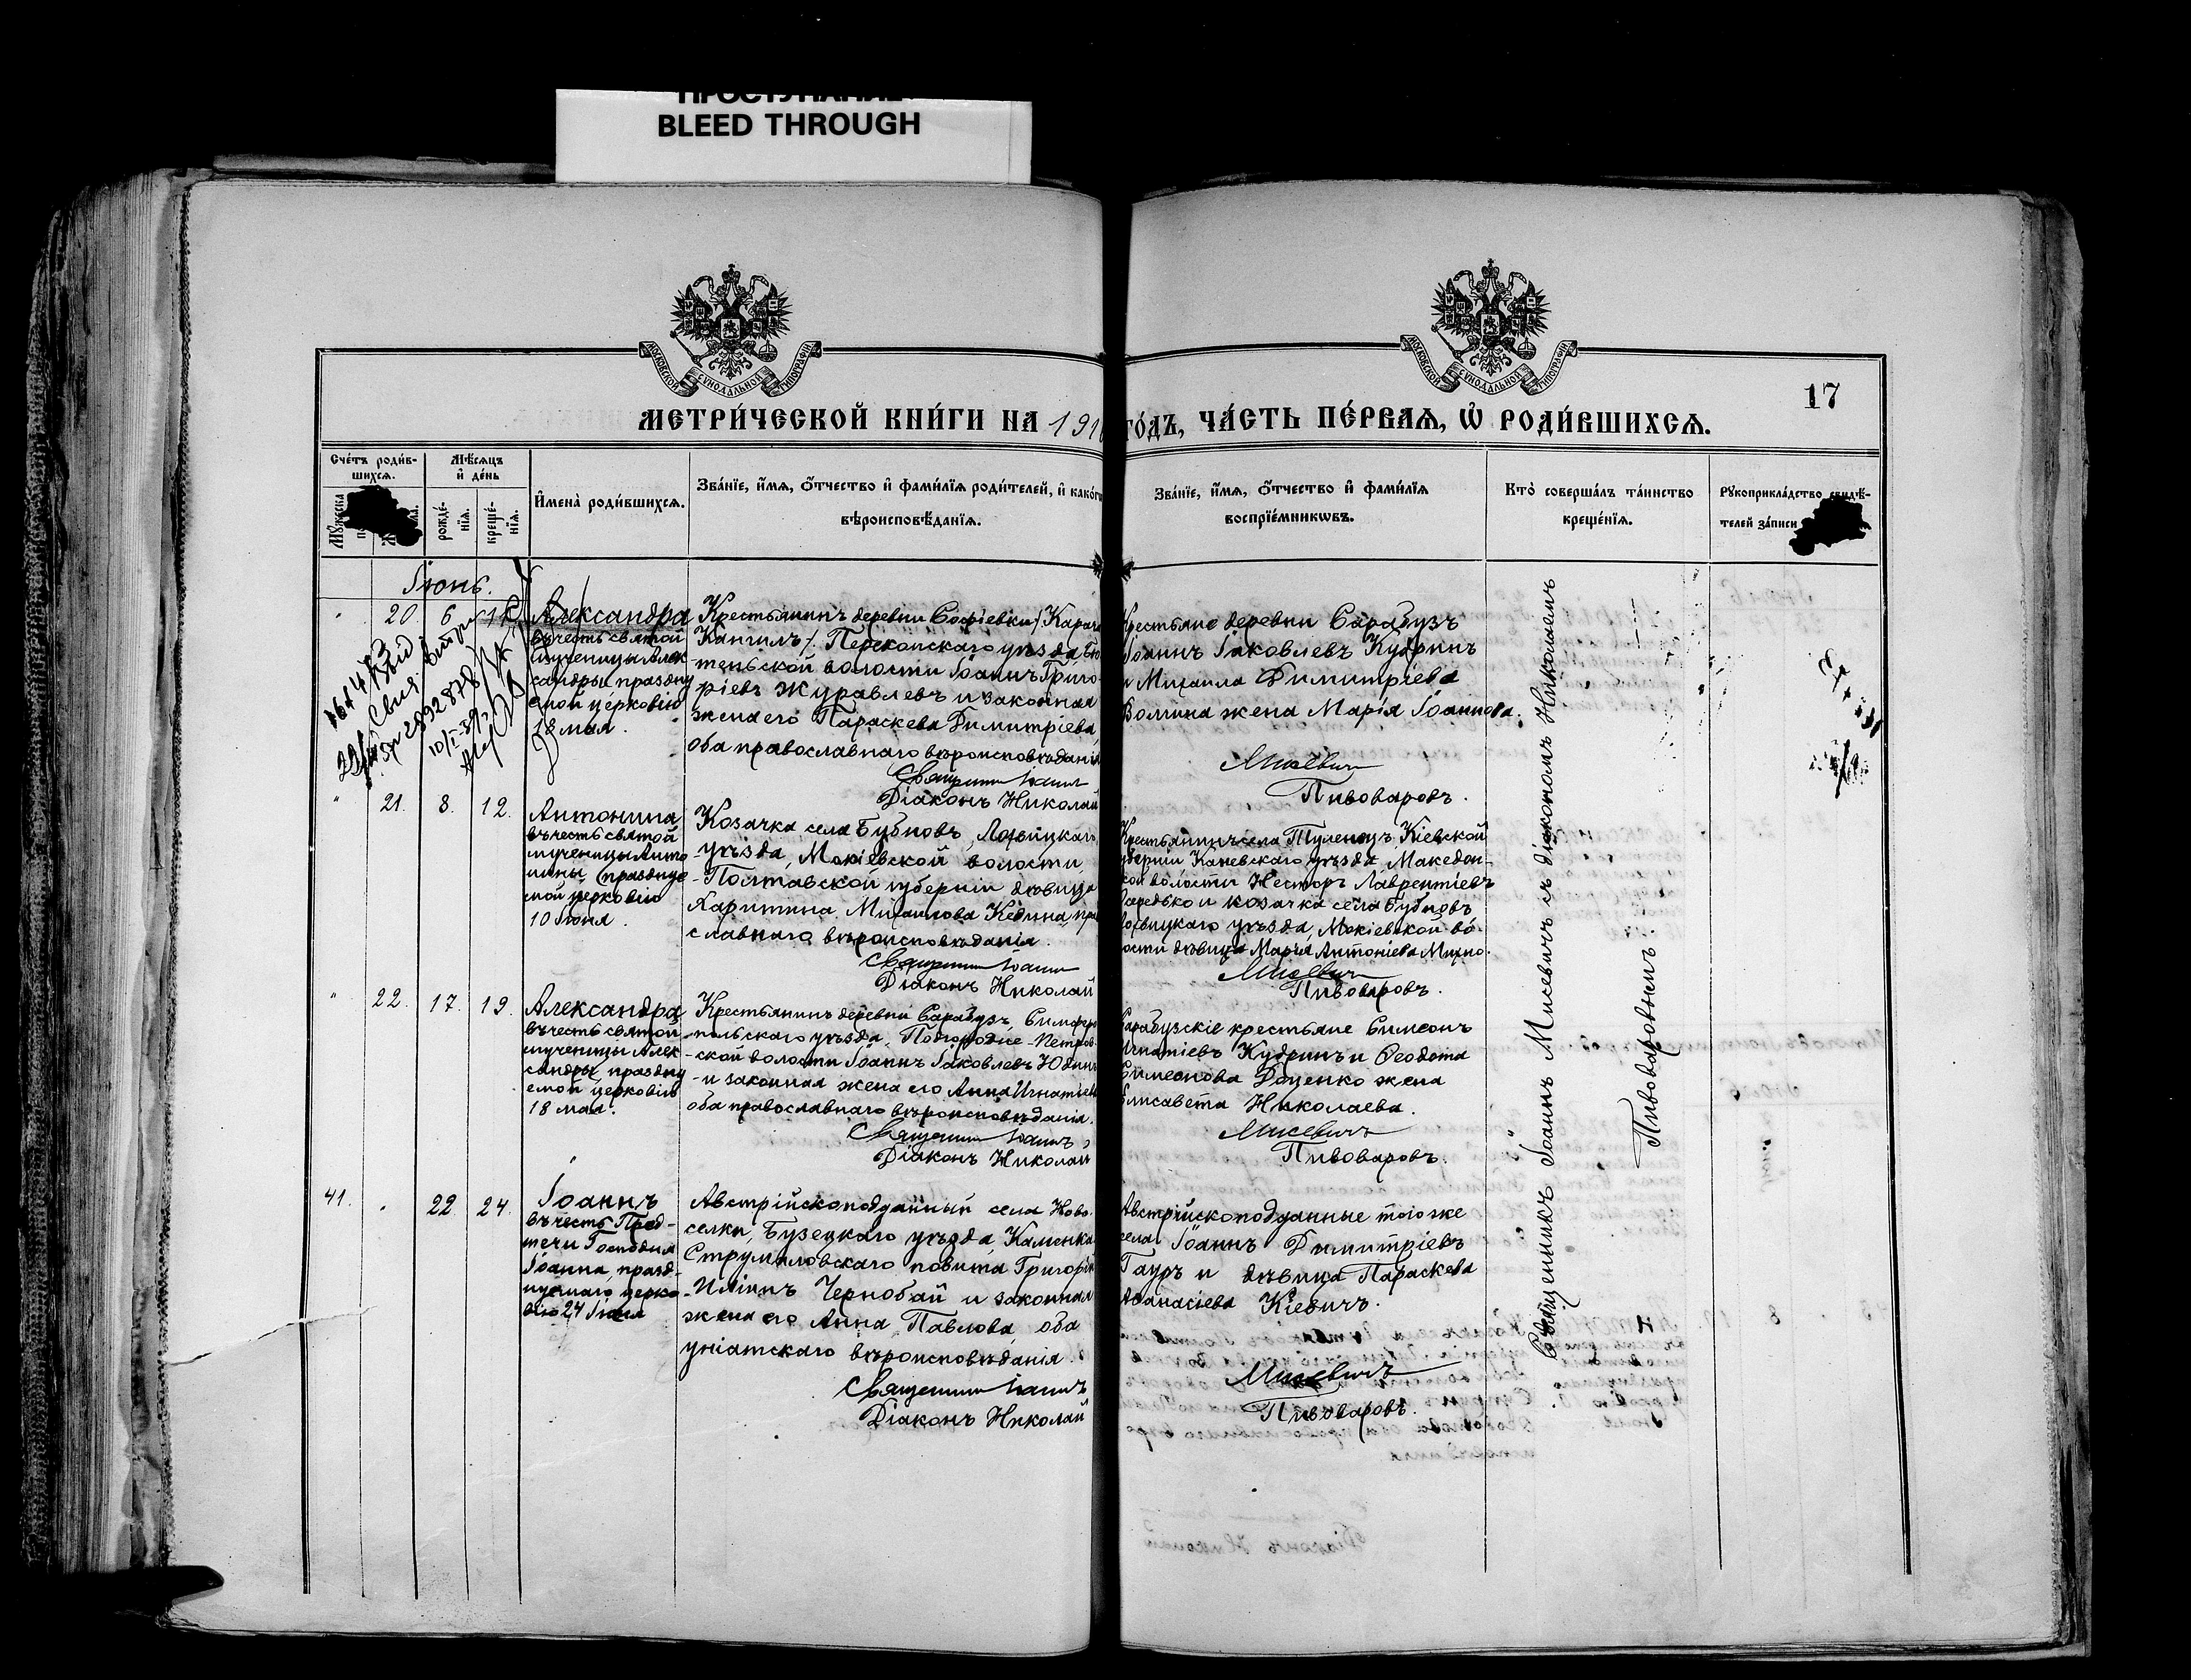 BLEED THROUGH
МОСКОВСКОЙ СѴНОДАЛЬНОЙ ТИПОГРАФІИ
МОСКОВСКОЙ СѴНОДАЛЬНОЙ ТИПОГРАФІИ
17
МЕТРИ́ЧЕСКОЙ КНИ́ГИ НА 191
ГО́ДЪ, ЧА́СТЬ ПЕ́РВАѦ, Ѡ҆ РОДИ́ВШИХСѦ.
Сче́тъ роди́в-
шихсѧ.
Мѣ́сѧцъ
и҆ де́нь
рожде́-
нїѧ.
креще́-
нїѧ.
И҆мена̀ роди́вшихсѧ.
Зва́нїе, и҆́мѧ, ѻ҆́тчество и҆ фами́лїѧ роди́телей, и҆ како́гѡ
вѣроисповѣ́данїѧ.
Зва́нїе, и҆́мѧ, ѻ҆́тчество и҆ фами́лїѧ
воспрїе́мникѡвъ.
Кто̀ соверша́лъ та́инство
креще́нїѧ.
Рꙋкоприкла́дство свидѣ́-
телей за́писи
Іюнь.
20 6
Александра
въ честь святой
мученицы Алек-
сандры, праздну
емой церковію
18 мая.
Крестьянинъ деревни Софіевки / Карача
Кангилъ /. Перекопскаго уѣзда,
-теньской волости Іоаннъ Григо-
ріевъ Журавлевъ и законная
жена его Параскева Димитріева,
оба православнаго вѣроисповѣданія
Священникъ Іоаннъ
Діаконъ Николай
Крестьяне деревни Сарабузъ
Іоаннъ Іаковлевъ Кудринъ
и Михаила Димитріева
жена Марія Іоаннова.
Мисевичъ
Пивоваровъ.
" 21. 8. 12.
Антонина
въ честь святой
мученицы Анто
нины (праздуе
мой церковію
10 Іюня.
Козачка села Бубновъ, Лохвицкаго
уѣзда, Мокіевской волости,
-Полтавской губерніи дѣвица
Харитина Михаилова Кедина, пра
славнаго вѣроисповѣданія.
Священникъ Іоаннъ
Діаконъ Николай
Крестьянинъ села Туленецъ, Кіевской
губерніи Каневскаго уѣзда, Македон-
ской волости Несторъ Лаврентіевъ
и козачка села Бубновъ
Лохвицкаго уѣзда, Мокіевской во-
лости дѣвица Марія Антоніева Михно.
Мисевичъ
Пивоваровъ.
" 22. 17. 19.
Александра
въ честь святой
мученицы Алек
сандры, праздну
емой церковію
18 мая.
Крестьянинъ деревни Сарабузъ, Симферо
польскаго уѣзда, Подгородне-Петров-
-ской волости Іоаннъ Іаковлевъ Юдинъ
-и законная жена его Анна Игнатіева
оба православнаго вѣроисповѣданія.
Священникъ Іоаннъ
Діаконъ Николай
Сарабузскіе крестьяне Симеонъ
Игнатіевъ Кудринъ и Ѳеодота
Симеонова Доценко жена
Елисавета Николаева.
Мисевичъ
Пивоваровъ.
41. " 22. 24.
Іоаннъ
въ честь Пред-
течи Господня
Іоанна, празд-
нуемаго церко-
вію 24 Іюня
Австрійскоподданный села Ново-
селки, Бузецкаго уѣзда, Каменка
Струмиловскаго повита, Григорій
-Иліинъ Чернобай и законная
жена его Анна Павлова, оба
уніатскаго вѣроисповѣданія.
Священникъ Іоаннъ
Діаконъ Николай
Австрійскоподданные того же
села Іоаннъ Димитріевъ
Гауръ и дѣвица Параскева
Аѳанасіева Кіевичъ.
Мисевичъ
Пивоваровъ.
Священникъ Іоаннъ Мисевичъ съ діакономъ Николаемъ
Пивоваровымъ.